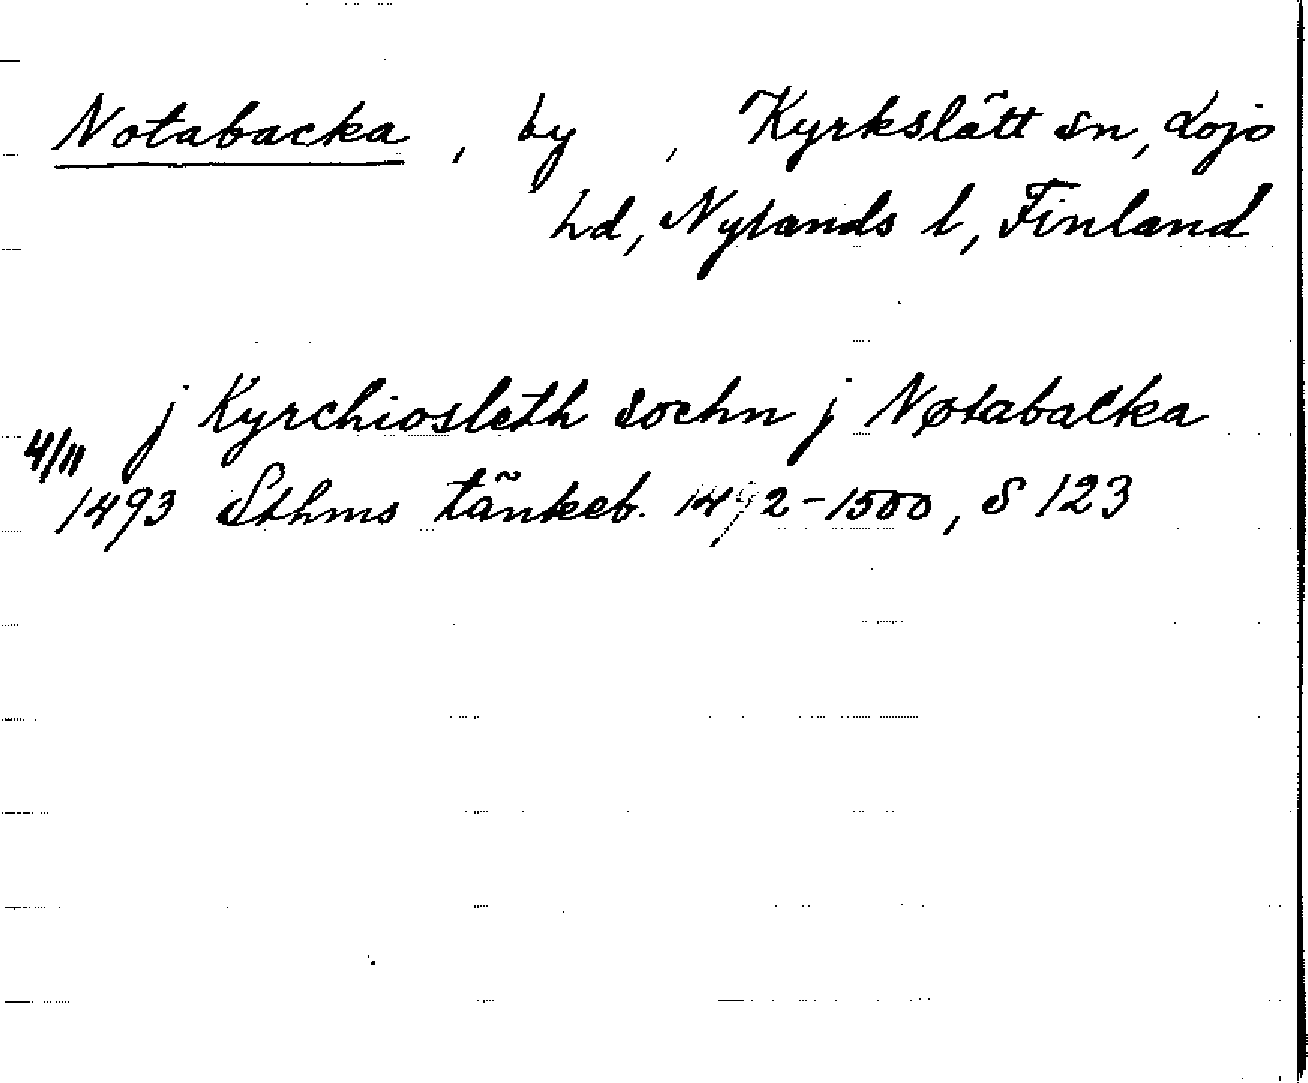 Notabacka, by, Kyrkslätt sn, Lojo
hd, Nylands l, Finland
j Kyrchiosleth sochn j Nøtabacka
4/11
1493 Sthms tänkeb. 1492-1500, S 123